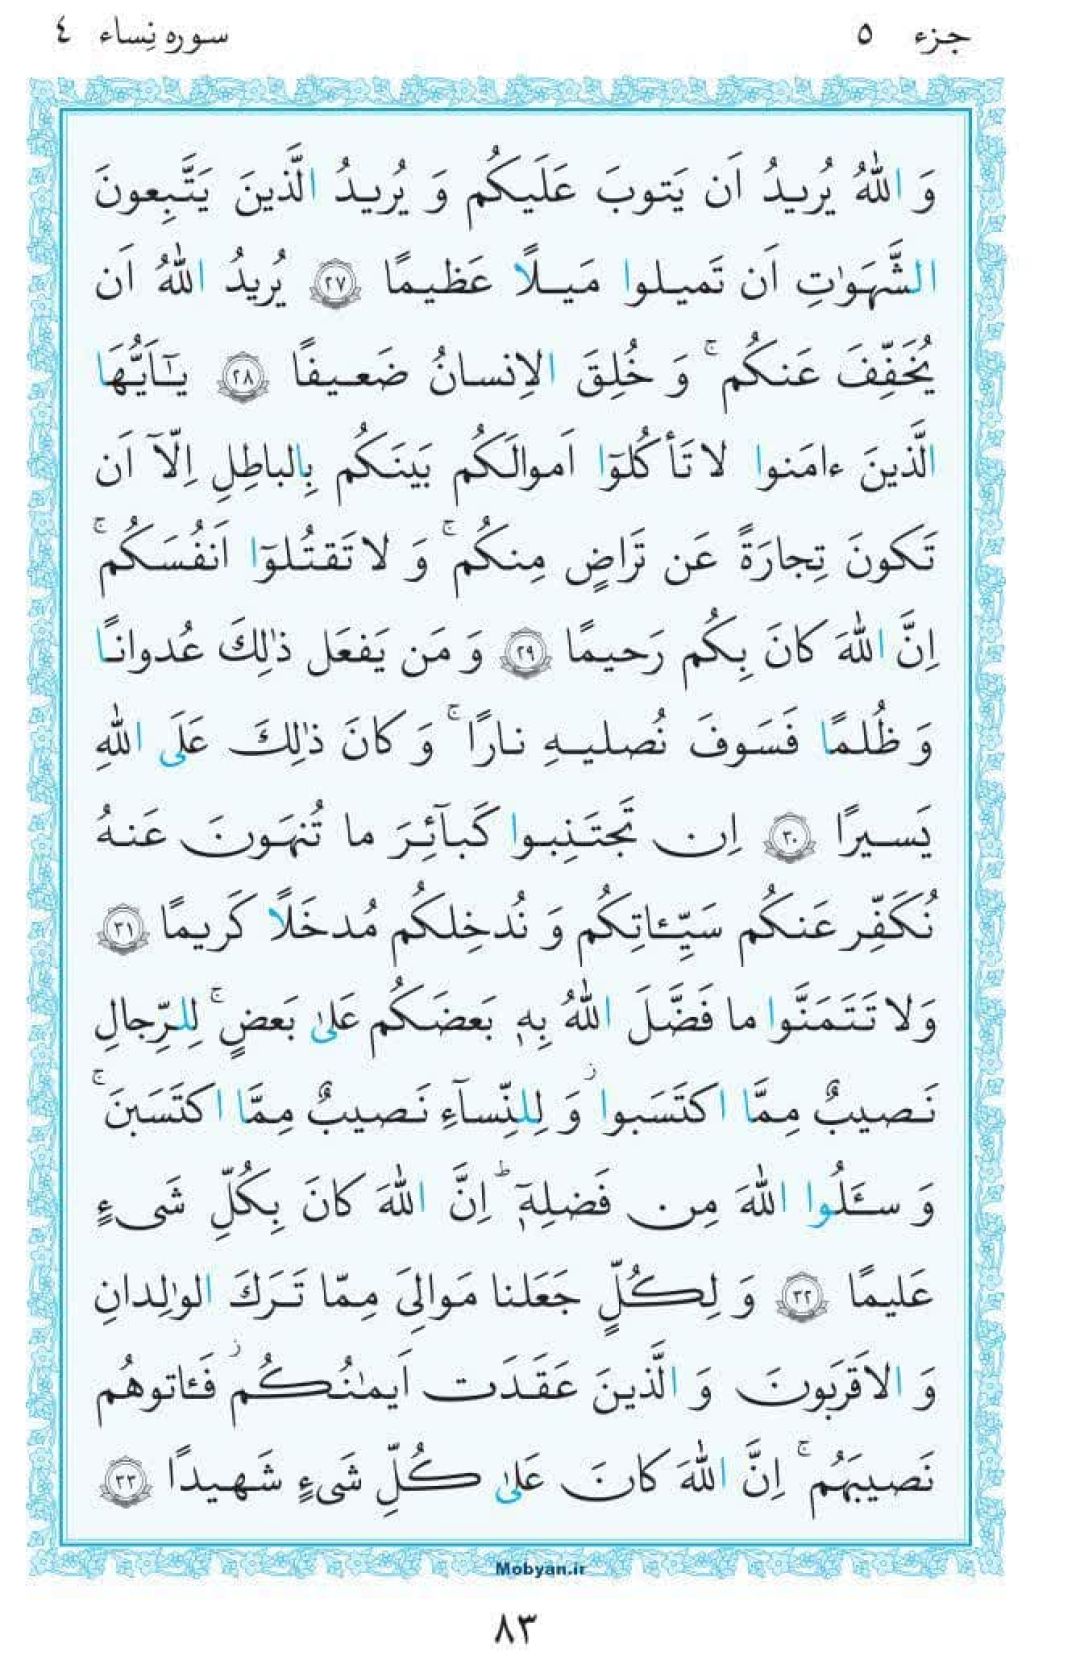 جزء ٥
سوره نِساء ٤
وَ اللّٰهُ يُريدُ اَن يَتوبَ عَلَيكُم وَ يُريدُ الَّذينَ يَتَّبِعونَ
الشَّهَوٰتِ اَن تَميلوا مَيلًا عَظيمًا ٢٧ يُريدُ اللّٰهُ اَن
يُخَفِّفَ عَنكُم ۚ وَ خُلِقَ الاِنسانُ ضَعيفًا ٢٨ يٰٓاَيُّهَا
الَّذينَ ءامَنوا لا تَأكُلوٓا اَموالَكُم بَينَكُم بِالباطِلِ اِلّآ اَن
تَكونَ تِجارَةً عَن تَراضٍ مِنكُم ۚ وَ لا تَقتُلوٓا اَنفُسَكُم ۚ
اِنَّ اللّٰهَ كانَ بِكُم رَحيمًا ٢٩ وَ مَن يَفعَل ذٰلِكَ عُدوانًا
وَ ظُلمًا فَسَوفَ نُصليهِ نارًا ۚ وَ كانَ ذٰلِكَ عَلَى اللّٰهِ
يَسيرًا ٣٠ اِن تَجتَنِبوا كَبآئِرَ ما تُنهَونَ عَنهُ
نُكَفِّر عَنكُم سَيِّـٔاتِكُم وَ نُدخِلكُم مُدخَلًا كَريمًا ٣١
وَلا تَتَمَنَّوا ما فَضَّلَ اللّٰهُ بِهٖ بَعضَكُم عَلىٰ بَعضٍ ۚ لِلرِّجالِ
نَصيبٌ مِمَّا اكتَسَبوا ز وَ لِلنِّسآءِ نَصيبٌ مِمَّا اكتَسَبنَ ۚ
وَ سـَٔلُوا اللّٰهَ مِن فَضلِهٖٓ ط اِنَّ اللّٰهَ كانَ بِكُلِّ شَىءٍ
عَليمًا ٣٢ وَ لِكُلٍّ جَعَلنا مَوالِىَ مِمّا تَرَكَ الوٰلِدانِ
وَ الاَقرَبونَ وَ الَّذينَ عَقَدَت اَيمٰنُكُم ز فَـٔاتوهُم
نَصيبَهُم ۚ اِنَّ اللّٰهَ كانَ عَلىٰ كُلِّ شَىءٍ شَهيدًا ٣٣
Mobyan.ir
٨٣